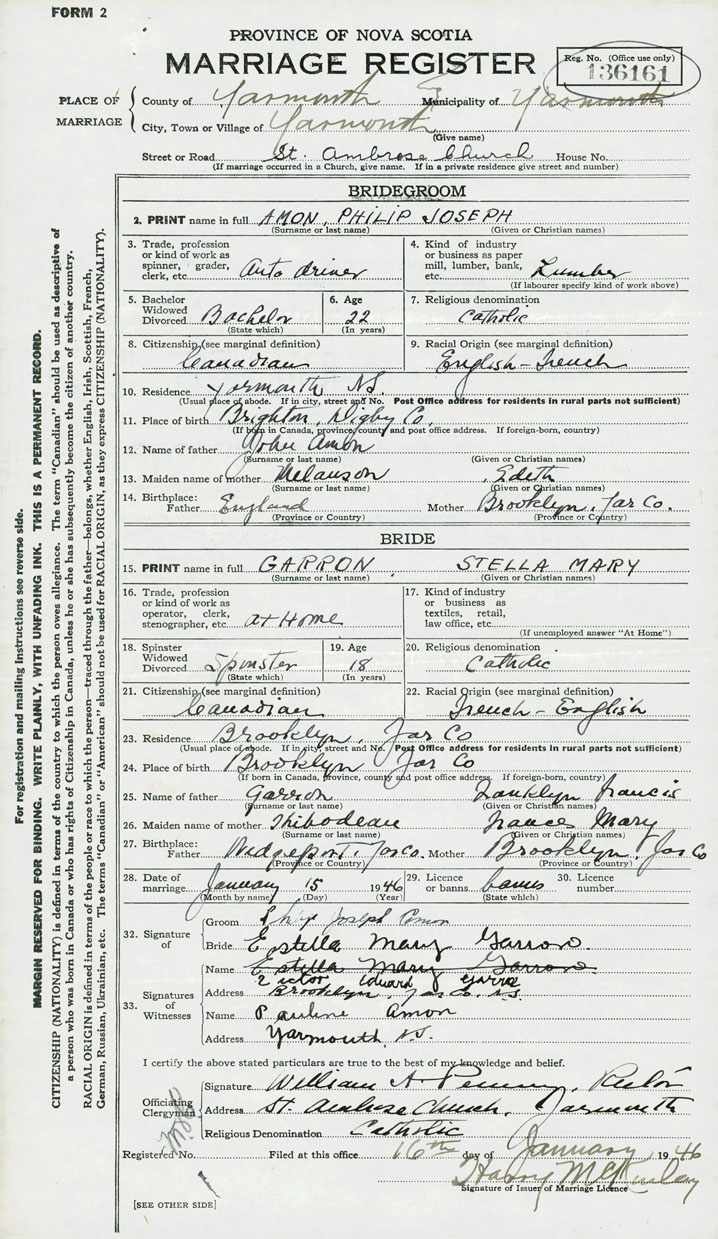 FORM 2
PROVINCE OF NOVA SCOTIA
MARRIAGE REGISTER
Reg. No. (Office use only)
136161
PLACE OF MARRIAGE
County of Yarmouth Municipality of Yarmouth
City, Town or Village of Yarmouth
(Give name)
Street or Road St. Ambrose Church House No.
(If marriage occurred in a Church, give name. If in a private residence give street and number)
BRIDEGROOM
2. PRINT name in full AMON, PHILIP JOSEPH
(Surname or last name) (Given or Christian names)
3. Trade, profession or kind of work as spinner, grader, clerk, etc. Auto driver
4. Kind of industry or business as paper mill, lumber, bank, etc. Lumber
(If labourer specify kind of work above)
5. Bachelor Widowed Divorced Bachelor
(State which)
6. Age 22
(In years)
7. Religious denomination Catholic
8. Citizenship (see marginal definition) Canadian
9. Racial Origin (see marginal definition) English-French
10. Residence Yarmouth N.S.
(Usual place of abode. If in city, street and No. Post Office address for residents in rural parts not sufficient)
11. Place of birth Brighton, Digby Co.
(If born in Canada, province, county and post office address. If foreign-born, country)
12. Name of father John Amon
(Surname or last name) (Given or Christian names)
13. Maiden name of mother Melanson, Edeth
(Surname or last name) (Given or Christian names)
14. Birthplace: Father England Mother Brooklyn, Yar Co.
(Province or Country) (Province or Country)
BRIDE
15. PRINT name in full GARRON, STELLA MARY
(Surname or last name) (Given or Christian names)
16. Trade, profession or kind of work as operator, clerk, stenographer, etc. at Home
17. Kind of industry or business as textiles, retail, law office, etc.
(If unemployed answer "At Home")
18. Spinster Widowed Divorced Spinster
(State which)
19. Age 18
(In years)
20. Religious denomination Catholic
21. Citizenship (see marginal definition) Canadian
22. Racial Origin (see marginal definition) French-English
23. Residence Brooklyn, Yar Co
(Usual place of abode. If in city, street and No. Post Office address for residents in rural parts not sufficient)
24. Place of birth Brooklyn Yar Co
(If born in Canada, province, county and post office address. If foreign-born, country)
25. Name of father Garron Franklyn Francis
(Surname or last name) (Given or Christian names)
26. Maiden name of mother Thibodeau Frances Mary
(Surname or last name) (Given or Christian names)
27. Birthplace: Father Wedgeport, Yar Co. Mother Brooklyn, Yar Co
(Province or Country) (Province or Country)
28. Date of marriage January 15 1946
(Month by name) (Day) (Year)
29. Licence or banns banns
(State which)
30. Licence number
32. Signature of
Groom Philip Joseph Amon
Bride Estella Mary Garron.
33. Signatures of Witnesses
Name Estella Mary Garron
Victor Edward Garron
Address Brooklyn, Yar Co. N.S.
Name Pauline Amon
Address Yarmouth, N.S.
I certify the above stated particulars are true to the best of my knowledge and belief.
Officiating Clergyman
Signature William A Penney, Rector
Address St. Ambrose Church, Yarmouth
Religious Denomination Catholic
Registered No. Filed at this office 16th day of January 1946
Harry McKinlay
Signature of Issuer of Marriage Licence
[SEE OTHER SIDE]
For registration and mailing instructions see reverse side.
MARGIN RESERVED FOR BINDING. WRITE PLAINLY, WITH UNFADING INK. THIS IS A PERMANENT RECORD.
CITIZENSHIP (NATIONALITY) is defined in terms of the country to which the person owes allegiance. The term "Canadian" should be used as descriptive of
a person who was born in Canada or who has rights of Citizenship in Canada, unless he or she has subsequently become the citizen of another country.
RACIAL ORIGIN is defined in terms of the people or race to which the person—traced through the father—belongs, whether English, Irish, Scottish, French,
German, Russian, Ukrainian, etc. The terms "Canadian" or "American" should not be used for RACIAL ORIGIN, as they express CITIZENSHIP (NATIONALITY).